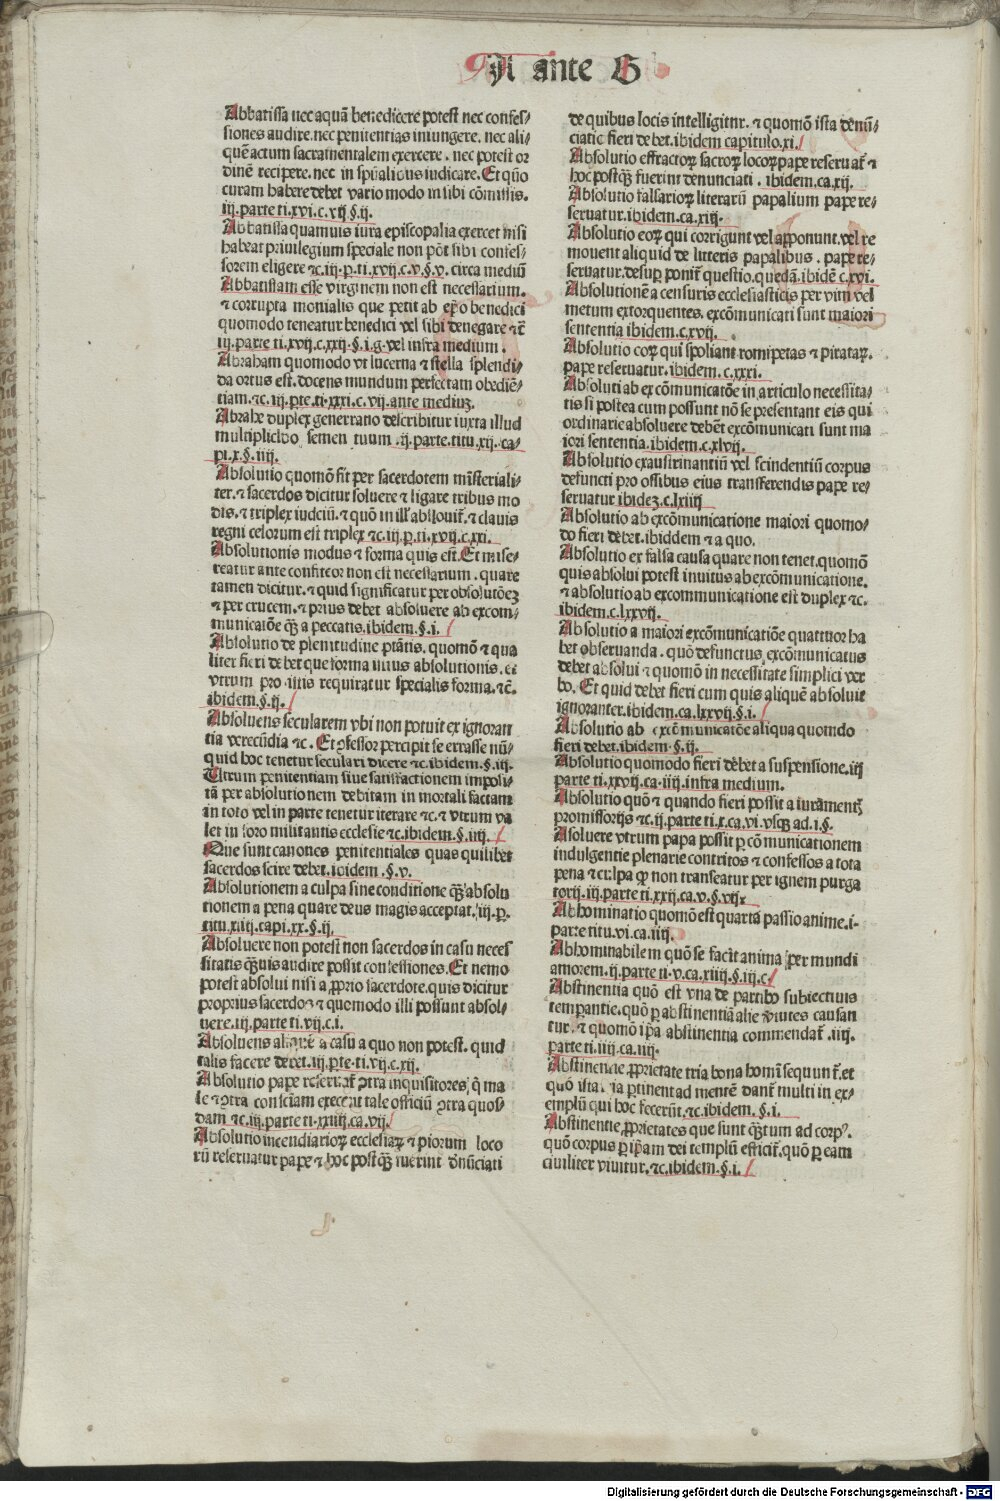 A ante B
Abbatissa nec aquā benedicere potest nec confes⸗
siones audire.nec penitentias iniungere. nec ali⸗
quē actum sacramentalem exercere . nec potest or
dinē recipere.nec in spūalibus iudicare.Et quō
curam habere debet vario modo in sibi cōmissis.
iij.parte ti.xvi.c.vij.§.ij.
Abbatissa quamuis iura episcopalia exercet nisi
habeat priuilegium speciale non pōt sibi confes⸗
sorem eligere ⁊c.iij.p.ti.xvij.c.v.§.v. circa mediū
Abbatissam esse virginem non est necessarium.
⁊ corrupta monialis que petit ab ep̄o benedici
quomodo teneatur benedici vel sibi denegare ⁊c̄
iij.parte ti.xvij.c.xxij.§.i.g.vel infra medium.
Abraham quomodo vt lucerna ⁊ stella splendi⸗
da ortus est.docens mundum perfectam obediē⸗
tiam.⁊c.iij.pte.ti.xxxi.c.vij.ante mediuꝫ.
Abrahe duplex generatio describitur iuxta illud
multiplicabo semen tuum .ij.parte.titu.xij.ca⸗
pi.x.§.iiij.
Absolutio quomō fit per sacerdotem misteriali⸗
ter.⁊ sacerdos dicitur soluere ⁊ ligare tribus mo
dis.⁊ triplex iudciū.⁊ quō in ill' absolouit̄.⁊ clauis
regni celorum est triplex ⁊c.iij.p.ti.xvij.c.xxi.
Absolutionis modus ⁊ forma quis est.Et mise⸗
reatur ante confiteor non est necessarium.quare
tamen dicitur.⁊ quid significatur per absolutōeꝫ
⁊ per crucem.⁊ prius debet absoluere ab excom⸗
municatōe qꝫ̄ a peccatis.ibidem.§.i.
Absolutio de plenitudine ptātis.quomō ⁊ qua
liter fieri debet que forma illius absolutionis.et
vtrum pro illis requiratur specialis forma.⁊c̄.
ibidem.§.ij.
Absoluens secularem vbi non potuit ex ignoran
tia verecūdia ⁊c. Et ꝯfessor percipit se errasse nū⸗
quid hoc tenetur seculari dicere ⁊c.ibidem.§.iij.
Utrum penitentiam siue satisfactionem imposi⸗
tā per absolutionem debitam in mortali factam
in toto vel in parte tenetur iterare ⁊c.⁊ vtrum va
let in foro militantis ecclesie ⁊c.ibidem.§.iiij.
Que sunt canones penitentiales quas quilibet
sacerdos scire debet.ibidem.§.v.
Absolutionem a culpa sine conditione qꝫ̄ absolu
tionem a pena quare deus magis acceptat.iij.p.
titu.xiiij.capi.xx.§.ij.
Absoluere non potest non sacerdos in casu neces
sitatis qꝫ̄uis audire possit confessiones.Et nemo
potest absolui nisi a ꝓprio sacerdote.quis dicitur
proprius sacerdos ⁊ quemodo illi possunt absol⸗
uere.iij.parte ti.vij.c.i.
Absoluens aliquē a casu a quo non potest. quid
talis facere debet.iij.pte.ti.vij.c.xij.
Absolutio pape reseruat̄ ꝯtra inquisitores q̇ ma
le ⁊ ꝯtra consciam execent tale officiū ꝯtra quos⸗
dam ⁊c.iij.parte ti.xxiiij.ca.vij.
Absolutio incendiarioꝝ ecclesiaꝝ ⁊ piorum loco
rū reseruatur pape ⁊ hoc postqꝫ̄ fuerint dēnūciati
de quibus locis intelligitur. ⁊ quomō ista denū⸗
ciatio fieri debet.ibidem capitulo.xi.
Absolutio effractoꝝ sacroꝝ locoꝝ pape reseruat̄ ⁊
hoc postqꝫ̄ fuerint denunciati . ibidem.ca.xij.
Absolutio falsarioꝝ literarū papalium pape re⸗
seruatur.ibidem.ca.xiij.
Absolutio eoꝝ qui corrigunt vel apponunt.vel re
mouent aliquid de litteris papalibus . pape re⸗
seruatur.desup ponit̄ questio.quedā.ibidē c.xvi.
Absolutionē a censuris ecclesiasticis per vim vel
metum extorquentes. excōmunicati sunt maiori
sententia ibidem.c.xvij.
Absolutio eoꝝ qui spoliant romipetas ⁊ pirataꝝ.
pape reseruatur.ibidem.c.xxxi.
Absoluti ab excōmunicatōe in articulo necessita⸗
tis si postea cum possunt nō se presentant eis qui
ordinarie absoluere debēt excōmunicati sunt ma
iori sententia.ibidem.c.xlvij.
Absolutio exausirinantiū vel scindentiū corpus
defuncti pro ossibus eius transferendis pape re⸗
seruatur ibideꝫ.c.lxiiij
Absolutio ab excōmunicatione maiori quomo⸗
do fieri debet.ibiddem ⁊ a quo.
Absolutio ex falsa causa quare non tenet.quomō
quis absolui potest inuitus ab excōmunicatione.
⁊ absolutio ab excommunicatione est duplex ⁊c.
ibidem.c.lxxvij.
Absolutio a maiori excōmunicatiōe quattuor ha
bet obseruanda . quō defunctus excōmunicatus
debet absolui ⁊ quomō in necessitate simplici ver
bo. Et quid debet fieri cum quis aliquē absoluit
ignoranter.ibidem.ca.lxxvij.§.i.
Absolutio ab excōmunicatōe aliqua quomdo
fieri debet.ibidem.§.ij.
Absolutio quomodo fieri debet a suspensione.iij
parte ti.xxvij.ca.iiij.infra medium.
Absolutio quō ⁊ quando fieri possit a iuramentꝭ
promissorijs ⁊c.ij.parte ti.x.ca.vi.vsqꝫ ad.i.§.
Asoluere vtrum papa possit p cōmunicationem
indulgentie plenarie contritos ⁊ confessos a tota
pena ⁊ culpa ꝙ non transeatur per ignem purga
torij.iij.parte ti.xxij.ca.v.§.vij.
Abhominatio quomō est quarta passio anime.i⸗
parte titu.vi.ca.iiij.
Abhominabilem quō se facit anima per mundi
amorem.ij.parte ti.v.ca.xiiij.§.iij.c
Abstinentia quō est vna de partibꝰ subiectiuis
temperantie.quō p abstinentiā alie v̄tutes causan
tur. ⁊ quomō ip̄a abstinentia commendat̄ .iiij.
parte ti.iiij.ca.iiij.
Abstinentie ꝓprietate tria bona homī sequunt̄.et
quō ista tria ptinent ad mentē dant̄ multi in ex⸗
emplū qui hoc fecerūt.⁊c.ibidem.§.i.
Abstinentie ꝓprietates que sunt qꝫ̄tum ad corpꝰ.
quō corpus p ip̄am dei templū efficit̄.quō p eam
ciuiliter viuitur.⁊c.ibidem.§.i.
Digitalisierung gefördert durch die Deutsche Forschungsgemeinschaft - DFG